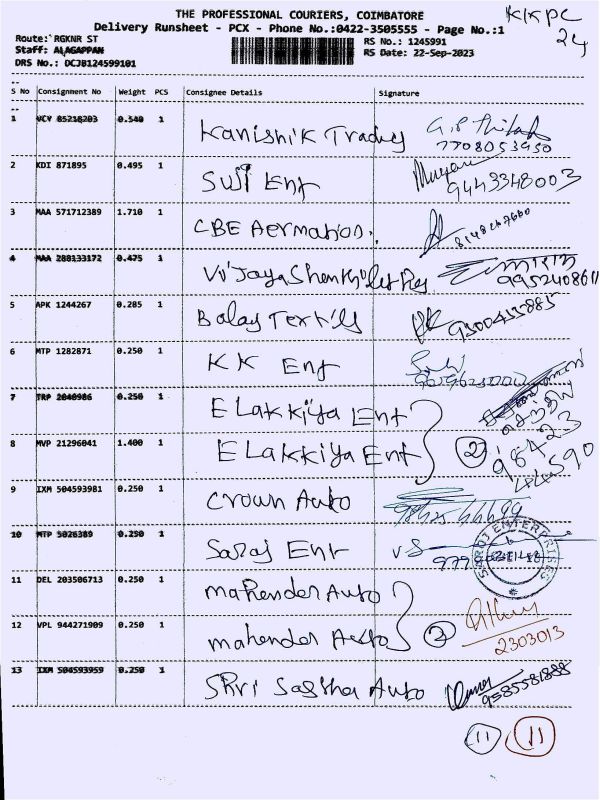 THE PROFESSIONAL COURIERS, COIMBATORE
KKPC
24
Delivery Runsheet - PCX - Phone No.:0422-3505555 - Page No.:1
Route: RGKNR ST
RS No.: 1245991
Staff: ALAGAPPAN
RS Date: 22-Sep-2023
DRS No.: DCJB124599101
S No Consignment No Weight PCS Consignee Details Signature
1 VCV 85218203 0.540 1 Kanishik
7708053950
2 KDI 871895 0.495 1 Suji Ent
9443348003
3 MAA 571712389 1.710 1 CBE
8148267660
4 MAA 288133172 0.475 1
9952408611
5 APK 1244267 0.285 1
9500453885
6 MTP 1282871 0.250 1 KK Ent
7 TRP 2040986 0.250 1 Elakkiya Ent
8 MVP 21296041 1.400 1 Elakkiya Ent 2
98423
9 IXM 504593981 0.250 1 Crown Auto
10 MTP 5026389 0.250 1 Saroj Ent
SAROJ ENTERPRISES
11 DEL 203506713 0.250 1 Mahender Auto
12 VPL 944271909 0.250 1 Mahender Auto 2
2303013
13 IXM 504593959 0.250 1 Shri Sastha Auto
9585581888
11 11